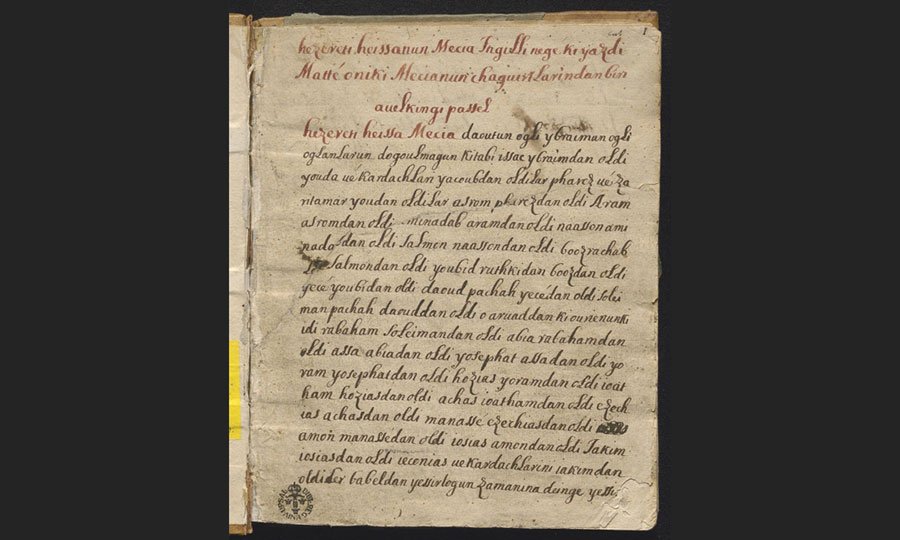 hezereti heissanun Mecia Ingilli nege ki yazdi
Matté oniki Mecianun chaguirtlarindan birı
auelkingi passel
hezereti heissa Mecia daoutun ogli ybraiman ogli
oglanlarun dogoulmagun kitabi issac ybraimdan oldi
youda ué kardachlan yacoubdan oldilar pharez ué za
ritamar youdan oldilar asrom pharezdan oldi Aram
asromdan oldi minadab aramdan oldi naasson ami
nadabdan oldi salmon naassondan oldi booz rachab
salmondan oldi youbid ruthkidan boozdan oldi
yecé youbidan oldi daoud pachah yecédan oldi solei
man pachah daouddan oldi o aruaddan ki ourienunki
idi rabaham soleimandan oldi abia rabahamdan
oldi assa abiadan oldi yosephat assadan oldi yo
ram yosephatdan oldi hozias yoramdan oldi ioat
ham hoziasdan oldi achas ioathamdan oldi ezech
ias achasdan oldi manassé ezechiasdan oldi
amon manassedan oldi iosias amondan oldi Iakim
iosiasdan oldi ieconias ue kardachlarini iakimdan
oldilar babeldan yessirlogun zamanina denge